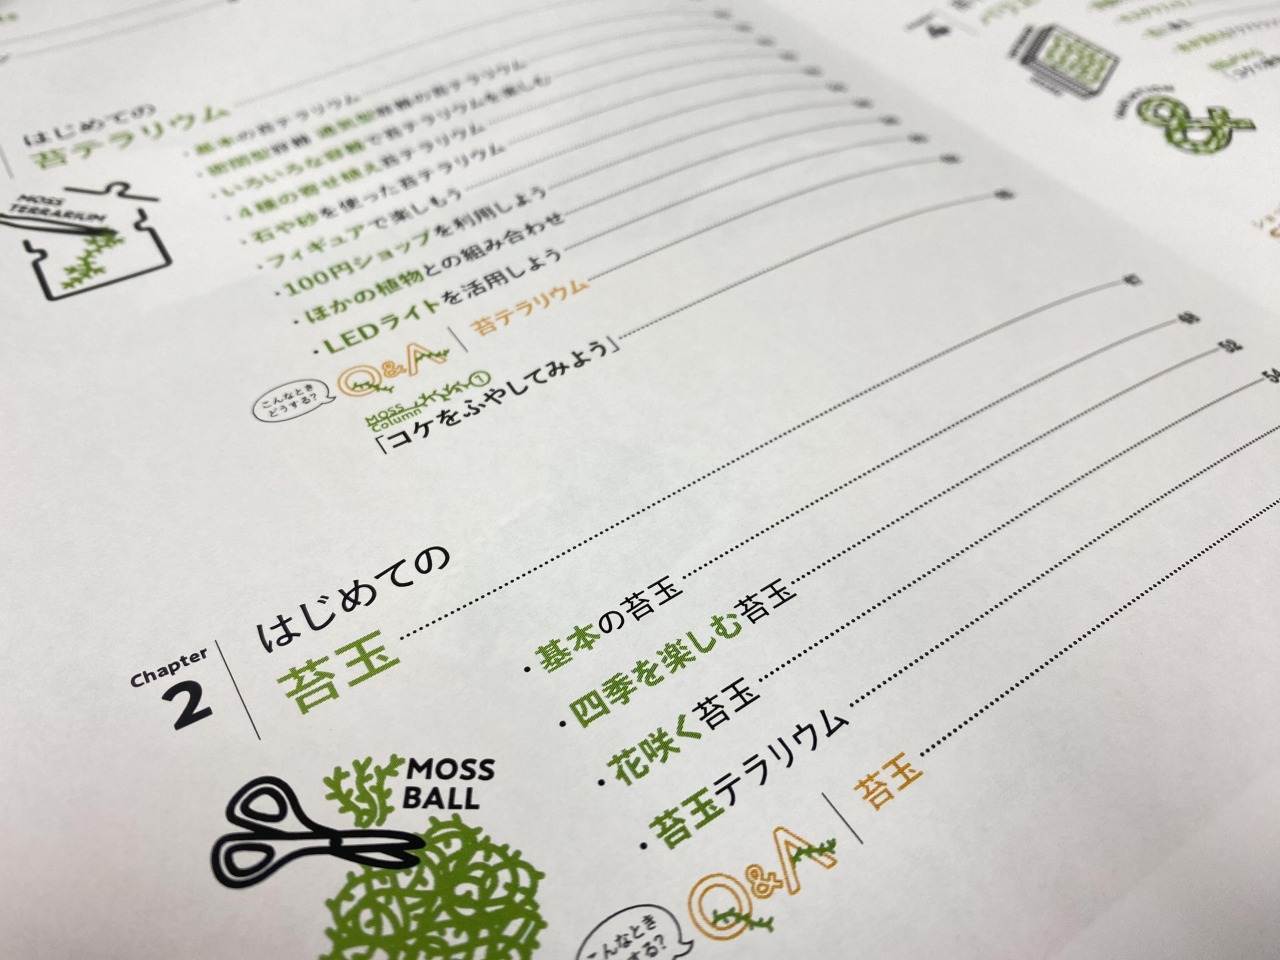 はじめての
苔テラリウム
MOSS
TERRARIUM
・基本の苔テラリウム
・密閉型容器、通気型容器の苔テラリウム
・いろいろな容器で苔テラリウムを楽しむ
・4種の寄せ植え苔テラリウム
・石や砂を使った苔テラリウム
・フィギュアで楽しもう
・100円ショップを利用しよう
・ほかの植物との組み合わせ
・LEDライトを活用しよう
こんなとき
どうする?
Q&A 苔テラリウム
MOSS
Column ①
「コケをふやしてみよう」
Chapter
2
はじめての
苔玉
MOSS
BALL
・基本の苔玉
・四季を楽しむ苔玉
・花咲く苔玉
・苔玉テラリウム
こんなとき
する?
Q&A 苔玉
47
48
52
54
4